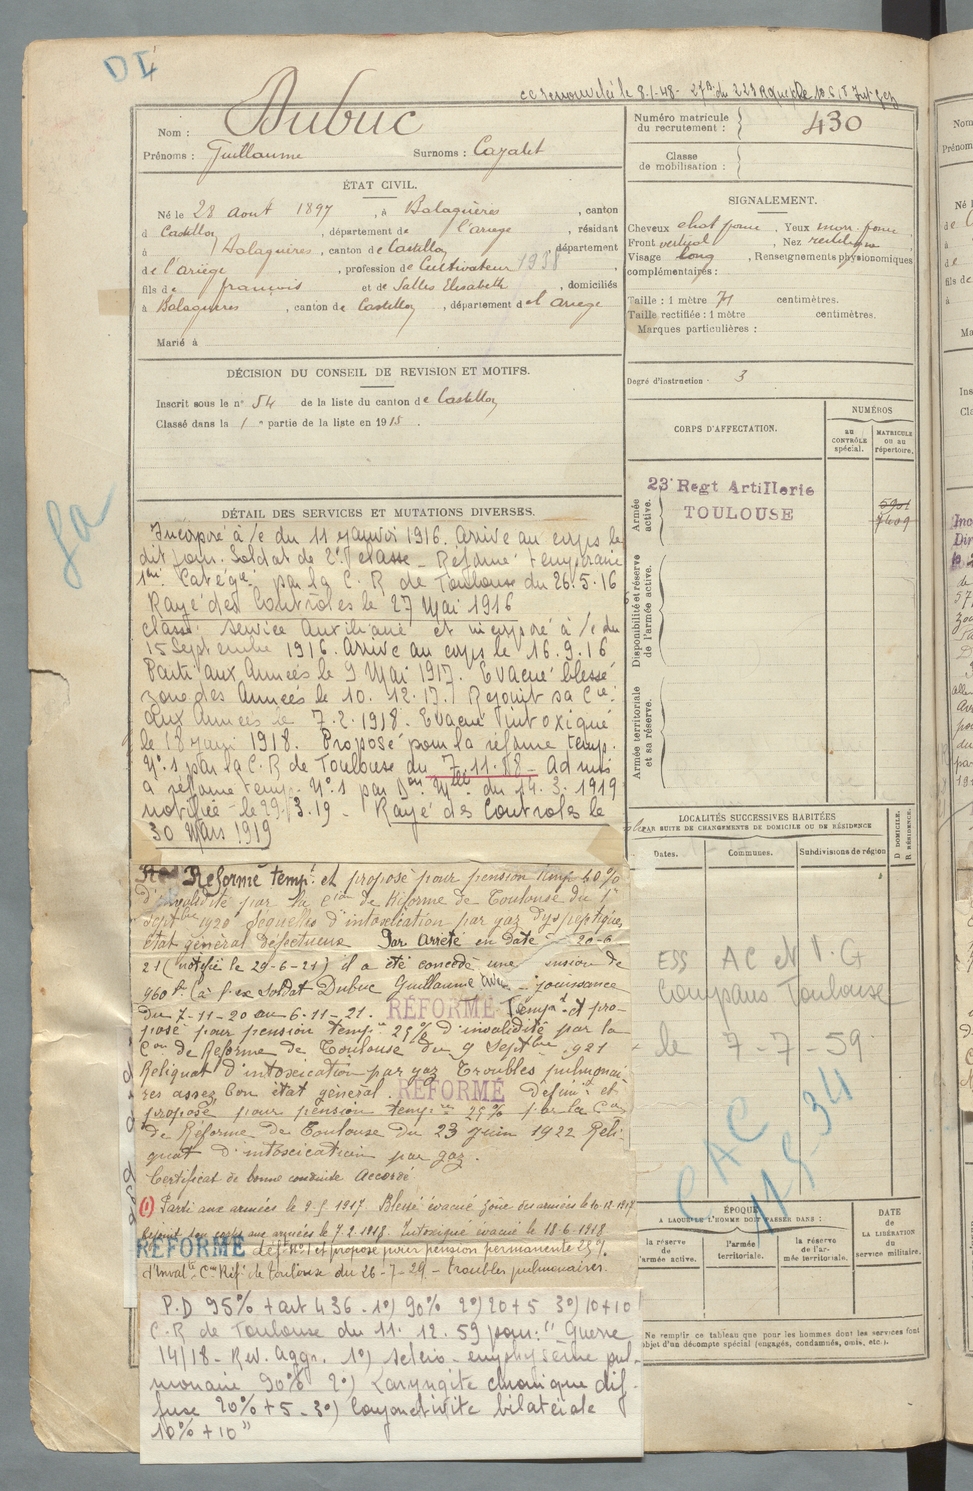 DI
Dubuc
Nom :
Prénoms : Guillaume Surnoms : Cazalet
Numéro matricule du recrutement : 430
Classe de mobilisation :
ÉTAT CIVIL.
Né le 28 Aout 1897, à Balaguères, canton
d Castillon, département de l'ariege, résidant
à Balaguères, canton de Castillon, département
de l'ariège, profession de Cultivateur 1938
fils de françois et de Salles Elisabeth, domiciliés
à Balaguères, canton de Castillon, département de l'ariege
Marié à
SIGNALEMENT.
Cheveux chat fonc, Yeux mon fonc
Front vertical, Nez rectiligne
Visage long, Renseignements physionomiques
complémentaires :
Taille : 1 mètre 71 centimètres.
Taille rectifiée : 1 mètre centimètres.
Marques particulières :
Degré d'instruction : 3
DÉCISION DU CONSEIL DE REVISION ET MOTIFS.
Inscrit sous le n° 54 de la liste du canton de Castillon
Classé dans la 1e partie de la liste en 1915.
CORPS D'AFFECTATION.
NUMÉROS
AU CONTRÔLE spécial.
MATRICULE OU AU répertoire.
Armée active.
23e Regt Artillerie
TOULOUSE
7409
Disponibilité et réserve de l'armée active.
Armée territoriale et sa réserve.
DÉTAIL DES SERVICES ET MUTATIONS DIVERSES.
Incorporé à /c du 11 janvier 1916. Arrivé au corps le
dit jour. Soldat de 2e classe - Réformé temporaire
1ère Catégie par la C. R de Toulouse du 26.5.16
Rayé des Contrôles le 27 Mai 1916
classé service Auxiliaire et incorporé à /c du
15 Septembre 1916. Arrivé au corps le 16.9.16
Parti aux Armées le 9 Mai 1917. Evacué blessé
zone des Armées le 10.12.17. Rejoint sa Cie
aux Armées le 7.2.1918. Evacué intoxiqué
le 18 1918. Proposé pour la réforme temp.
N°1 par la C.R de Toulouse du 7.11.18 - Admis
à réforme temp. N°1 par Don Mlle du 14.3.1919
notifiée le 29.3.19 - Rayé des Controles le
30 Mars 1919
Réformé tempre et proposé pour pension temp 60%
d'invalidité par la Cion de Réforme de Toulouse du
septbre 1920 Séquelles d'intoxication par gaz Dyspeptique,
état général défectueux Par Arrêté en date 20-6-
21 (notifié le 29-6-21) il a été concédé une pension de
960 f. (à l'ex Soldat Dubuc Guillaume avec jouissance
du 7-11-20 au 6-11-21. RÉFORMÉ Tempre et pro-
posé pour pension tempre 25% d'invalidité par la
Con de Réforme de Toulouse du 9 Septbre 1921
Reliquat d'intoxication par gaz Troubles pulmonai-
res assez bon état général. RÉFORMÉ Définit et
proposé pour pension tempre 25% par la Con
de Réforme de Toulouse du 23 juin 1922 Reli-
quat d'intoxication par gaz.
Certificat de bonne conduite Accordé
(1) Parti aux armées le 9.5.1917. Blessé évacué zone des armées le 10.12.1917
Rejoint son corps aux armées le 7.2.1918. Intoxiqué évacué le 18.6.1918
RÉFORMÉ déf. N°1 et proposé pour pension permanente 25%
d'Invalté Con Réf. de Toulouse du 26-7-29 - troubles pulmonaires.
P.D 95% + art 436. 1°) 90% 2°) 20+5 3°) 10+10
C.R de Toulouse du 11.12.59 pour : "Guerre
14/18 - Rev. Aggr. 1°) scléro-emphysème pul-
monaire 90% 2°) Laryngite chronique dif-
fuse 20% + 5 - 3°) Conjonctivite bilatérale
10% + 10"
LOCALITÉS SUCCESSIVES HABITÉES
PAR SUITE DE CHANGEMENTS DE DOMICILE OU DE RÉSIDENCE
Dates.
Communes.
Subdivisions de région
D. DOMICILE. R. RÉSIDENCE.
ESS AC et V.G
Compans Toulouse
le 7-7-59
CAC
ÉPOQUE
A LAQUELLE L'HOMME DOIT PASSER DANS :
la réserve de l'armée active.
l'armée territoriale.
la réserve de l'armée territoriale.
DATE DE LA LIBÉRATION DU service militaire.
Ne remplir ce tableau que pour les hommes dont les services font
objet d'un décompte spécial (engagés, condamnés, omis, etc.).